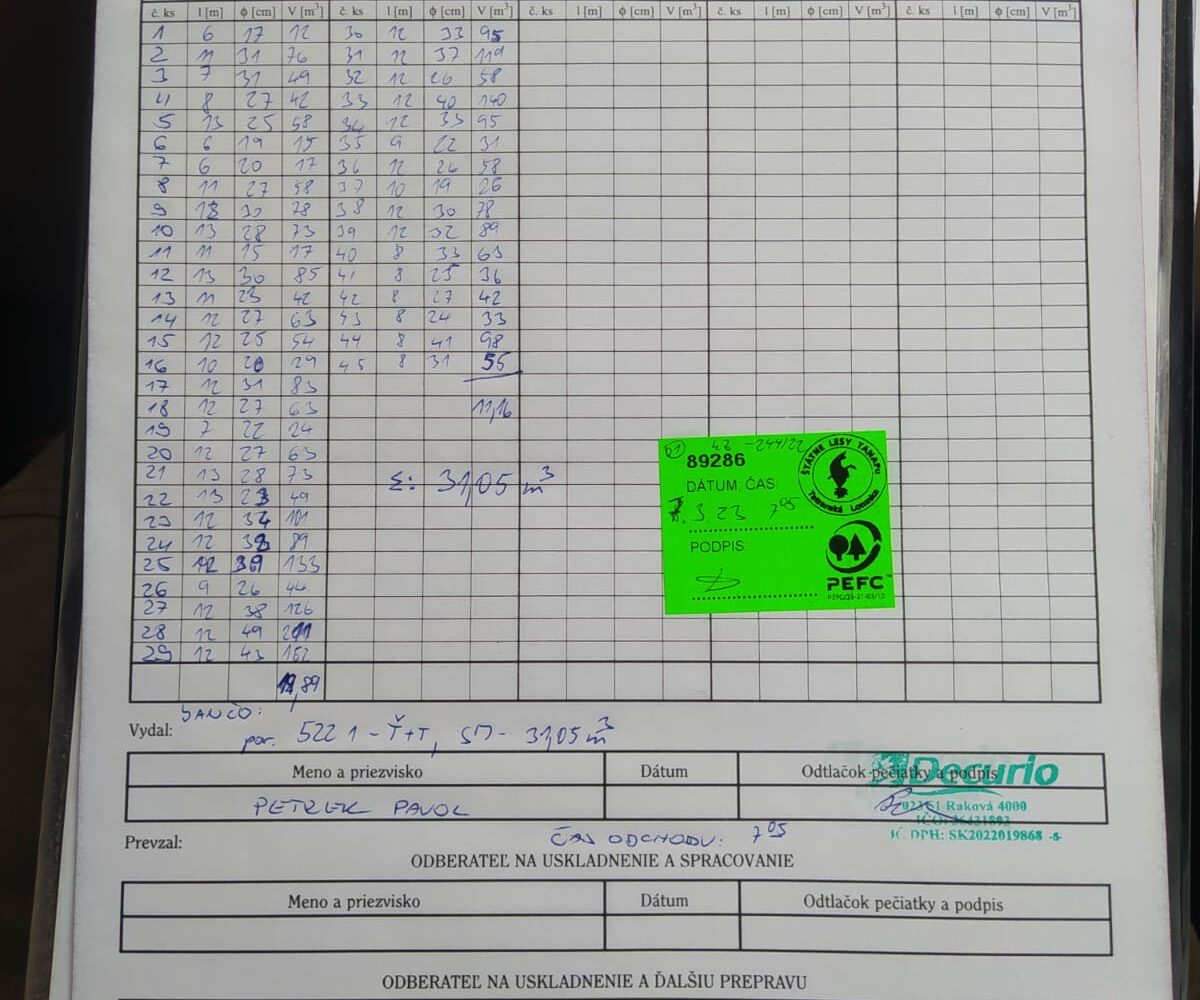 č. ks l [m] ϕ [cm] V [m³] č. ks l [m] ϕ [cm] V [m³] č. ks l [m] ϕ [cm] V [m³] č. ks l [m] ϕ [cm] V [m³] č. ks l [m] ϕ [cm] V [m³]
1 6 17 12 30 12 33 95
2 11 31 76 31 12 37 119
3 7 31 49 32 12 26 58
4 8 27 42 33 12 40 140
5 13 25 58 34 12 33 95
6 6 19 15 35 9 22 31
7 6 20 17 36 12 26 58
8 11 27 58 37 10 19 26
9 12 30 78 38 12 30 78
10 13 28 73 39 12 32 89
11 11 15 17 40 8 33 63
12 13 30 85 41 8 25 36
13 11 23 42 42 8 27 42
14 12 27 63 43 8 24 33
15 12 25 54 44 8 41 98
16 10 20 29 45 8 31 55
17 12 31 83
18 12 27 63 11,16
19 7 22 24
20 12 27 63
21 13 28 73
22 13 23 49
Σ: 31,05 m³
23 12 34 101
24 12 32 89
25 12 39 133
26 9 26 44
27 12 38 126
28 12 49 201
29 12 43 162
19,89
89286
DÁTUM, ČAS:
7. 3 23 7⁰⁵
PODPIS:
ŠTÁTNE LESY TANAPu
Tatranská Lomnica
PEFC™
Vydal: JANČO:
por. 522 1 - Ť+T, SM - 31,05 m³
Meno a priezvisko Dátum Odtlačok pečiatky a podpis
PETREK PAVOL
Decurio
023 61 Raková 4000
IČ DPH: SK2022019868 -5-
Prevzal: ČAS ODCHODU: 7⁰⁵
ODBERATEĽ NA USKLADNENIE A SPRACOVANIE
Meno a priezvisko Dátum Odtlačok pečiatky a podpis
ODBERATEĽ NA USKLADNENIE A ĎALŠIU PREPRAVU